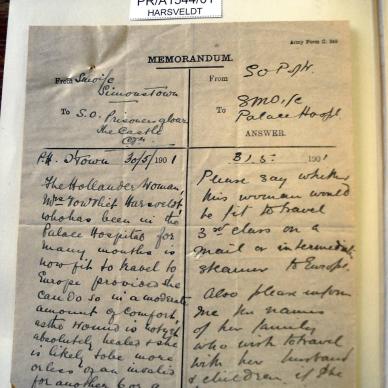 PR/A1544/01
HARSVELDT
Army Form C. 348
MEMORANDUM.
From
Simonstown
To S.O. Prisoners of war
The Castle
30/5/1901
The Hollander Woman,
Harsveldt
who has been in the
Palace Hospital for
many months is
now fit to travel to
Europe provided she
can do so in a moderate
amount of comfort,
as the wound is not yet
absolutely healed & she
is likely to be more
or less of an invalid
for another 6 or
From
To
Palace Hospl
ANSWER.
31.5. 1901
Please say whether
this woman would
be fit to travel
3rd class on a
mail or intermediate
steamer to Europe.
Also please inform
me the names
of her family
who wish to travel
with her husband
& children, if she